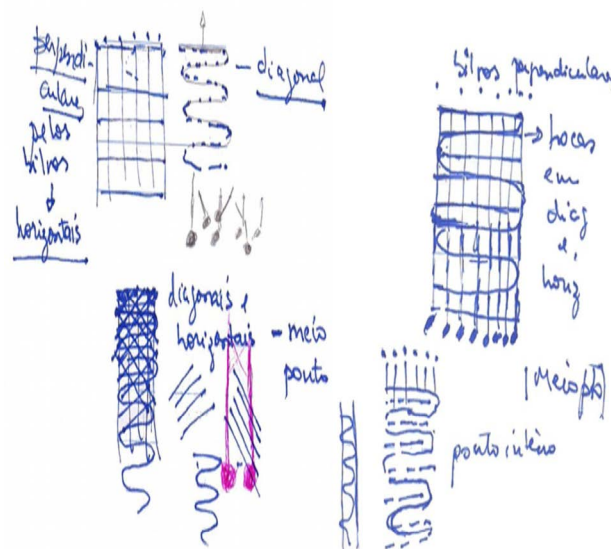 perpendi-
culare
pelos
bilros
horizontais
— diagonal
bilros perpendiculare
em
diag
e
horiz
diagonais e
horizontais — meio
ponto
ponto inteiro